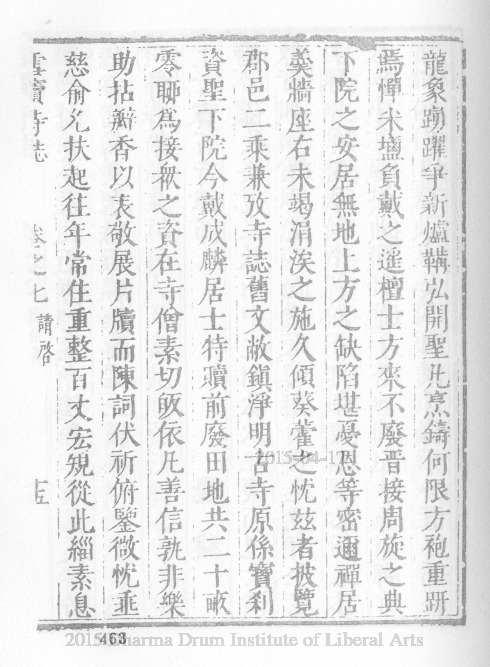 龍象踴躍爭新爐鞴弘開聖凡烹鑄何限方袍重趼
焉憚米鹽負戴之遙檀士方來不廢晋接周旋之典
下院之安居無地上方之缺陷堪憂恩等密邇禪居
羹牆座右未竭涓涘之施久傾葵藿之忱玆者披覽
郡邑二乘兼攷寺誌舊文敝鎮淨明古寺原係寶刹
資聖下院今戴成麟居士特贖前廢田地共二十畝
零聊為接眾之資在寺僧素切皈依凡善信孰非樂
助拈瓣香以表敬展片牘而陳詞伏祈俯鑒微忱垂
慈俞允扶起往年常住重整百丈宏規從此緇素息
雪竇寺誌 卷之七 請啓 十五
2015-04-17
463
2015 Dharma Drum Institute of Liberal Arts